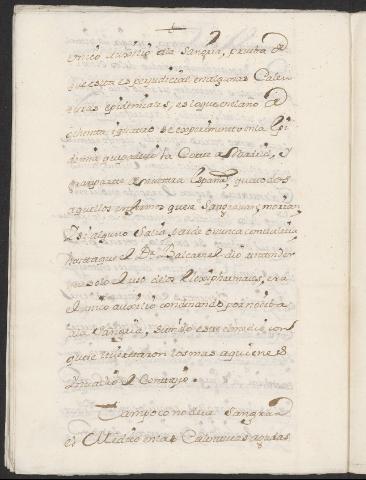 unico auxilio ala Sangria, prueba de
que esta es perjudicial en algunas Calen
turas epidemicas, es lo que en el año de
ochenta i quatro se experimento en la Epi
demia que padecio la Corte de Madrid, y
gran parte de nuestra España, que todos
aquellos enfermos que se Sangravan, morian,
y si alguno Salia, tarde o nunca convalecia,
hasta que el Dr. dio a entender
que solo el uso de los Alexipharmacos, era
el unico auxilio condenando por nociba
ala Sangria, siendo este remedio con
que se libertaron los mas a quienes
el Contagio.
Tampoco no deve Sangrar
el Medico en las Calenturas agudas